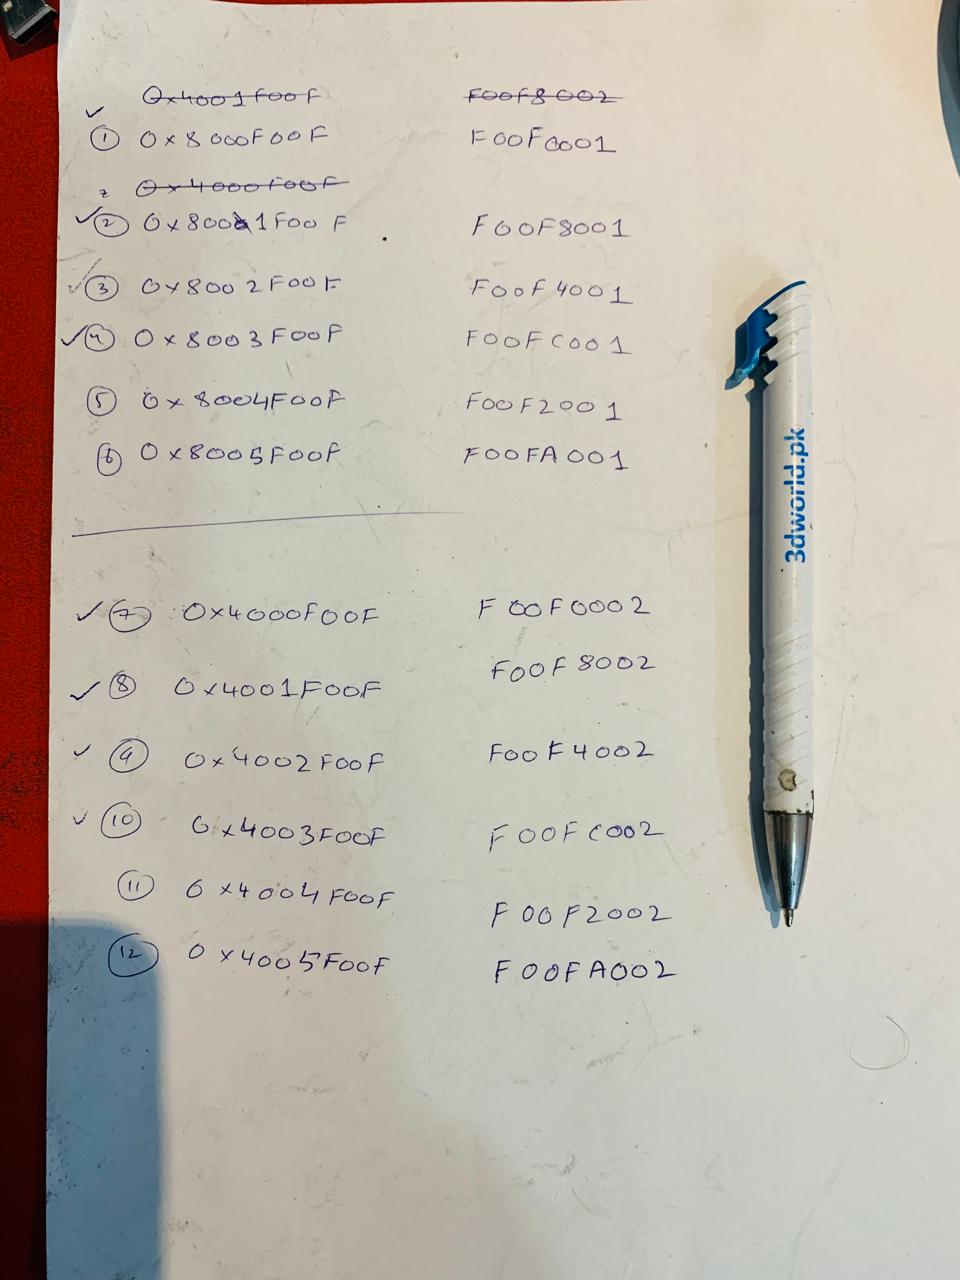 0x4001F00F F00F8002
① 0x8000F00F F00F0001
0x4000F00F
② 0x8001F00F F00F8001
③ 0x8002F00F F00F4001
④ 0x8003F00F F00FC001
⑤ 0x8004F00F F00F2001
⑥ 0x8005F00F F00FA001
⑦ 0x4000F00F F00F0002
⑧ 0x4001F00F F00F8002
⑨ 0x4002F00F F00F4002
⑩ 0x4003F00F F00FC002
⑪ 0x4004F00F F00F2002
⑫ 0x4005F00F F00FA002
3dworld.pk